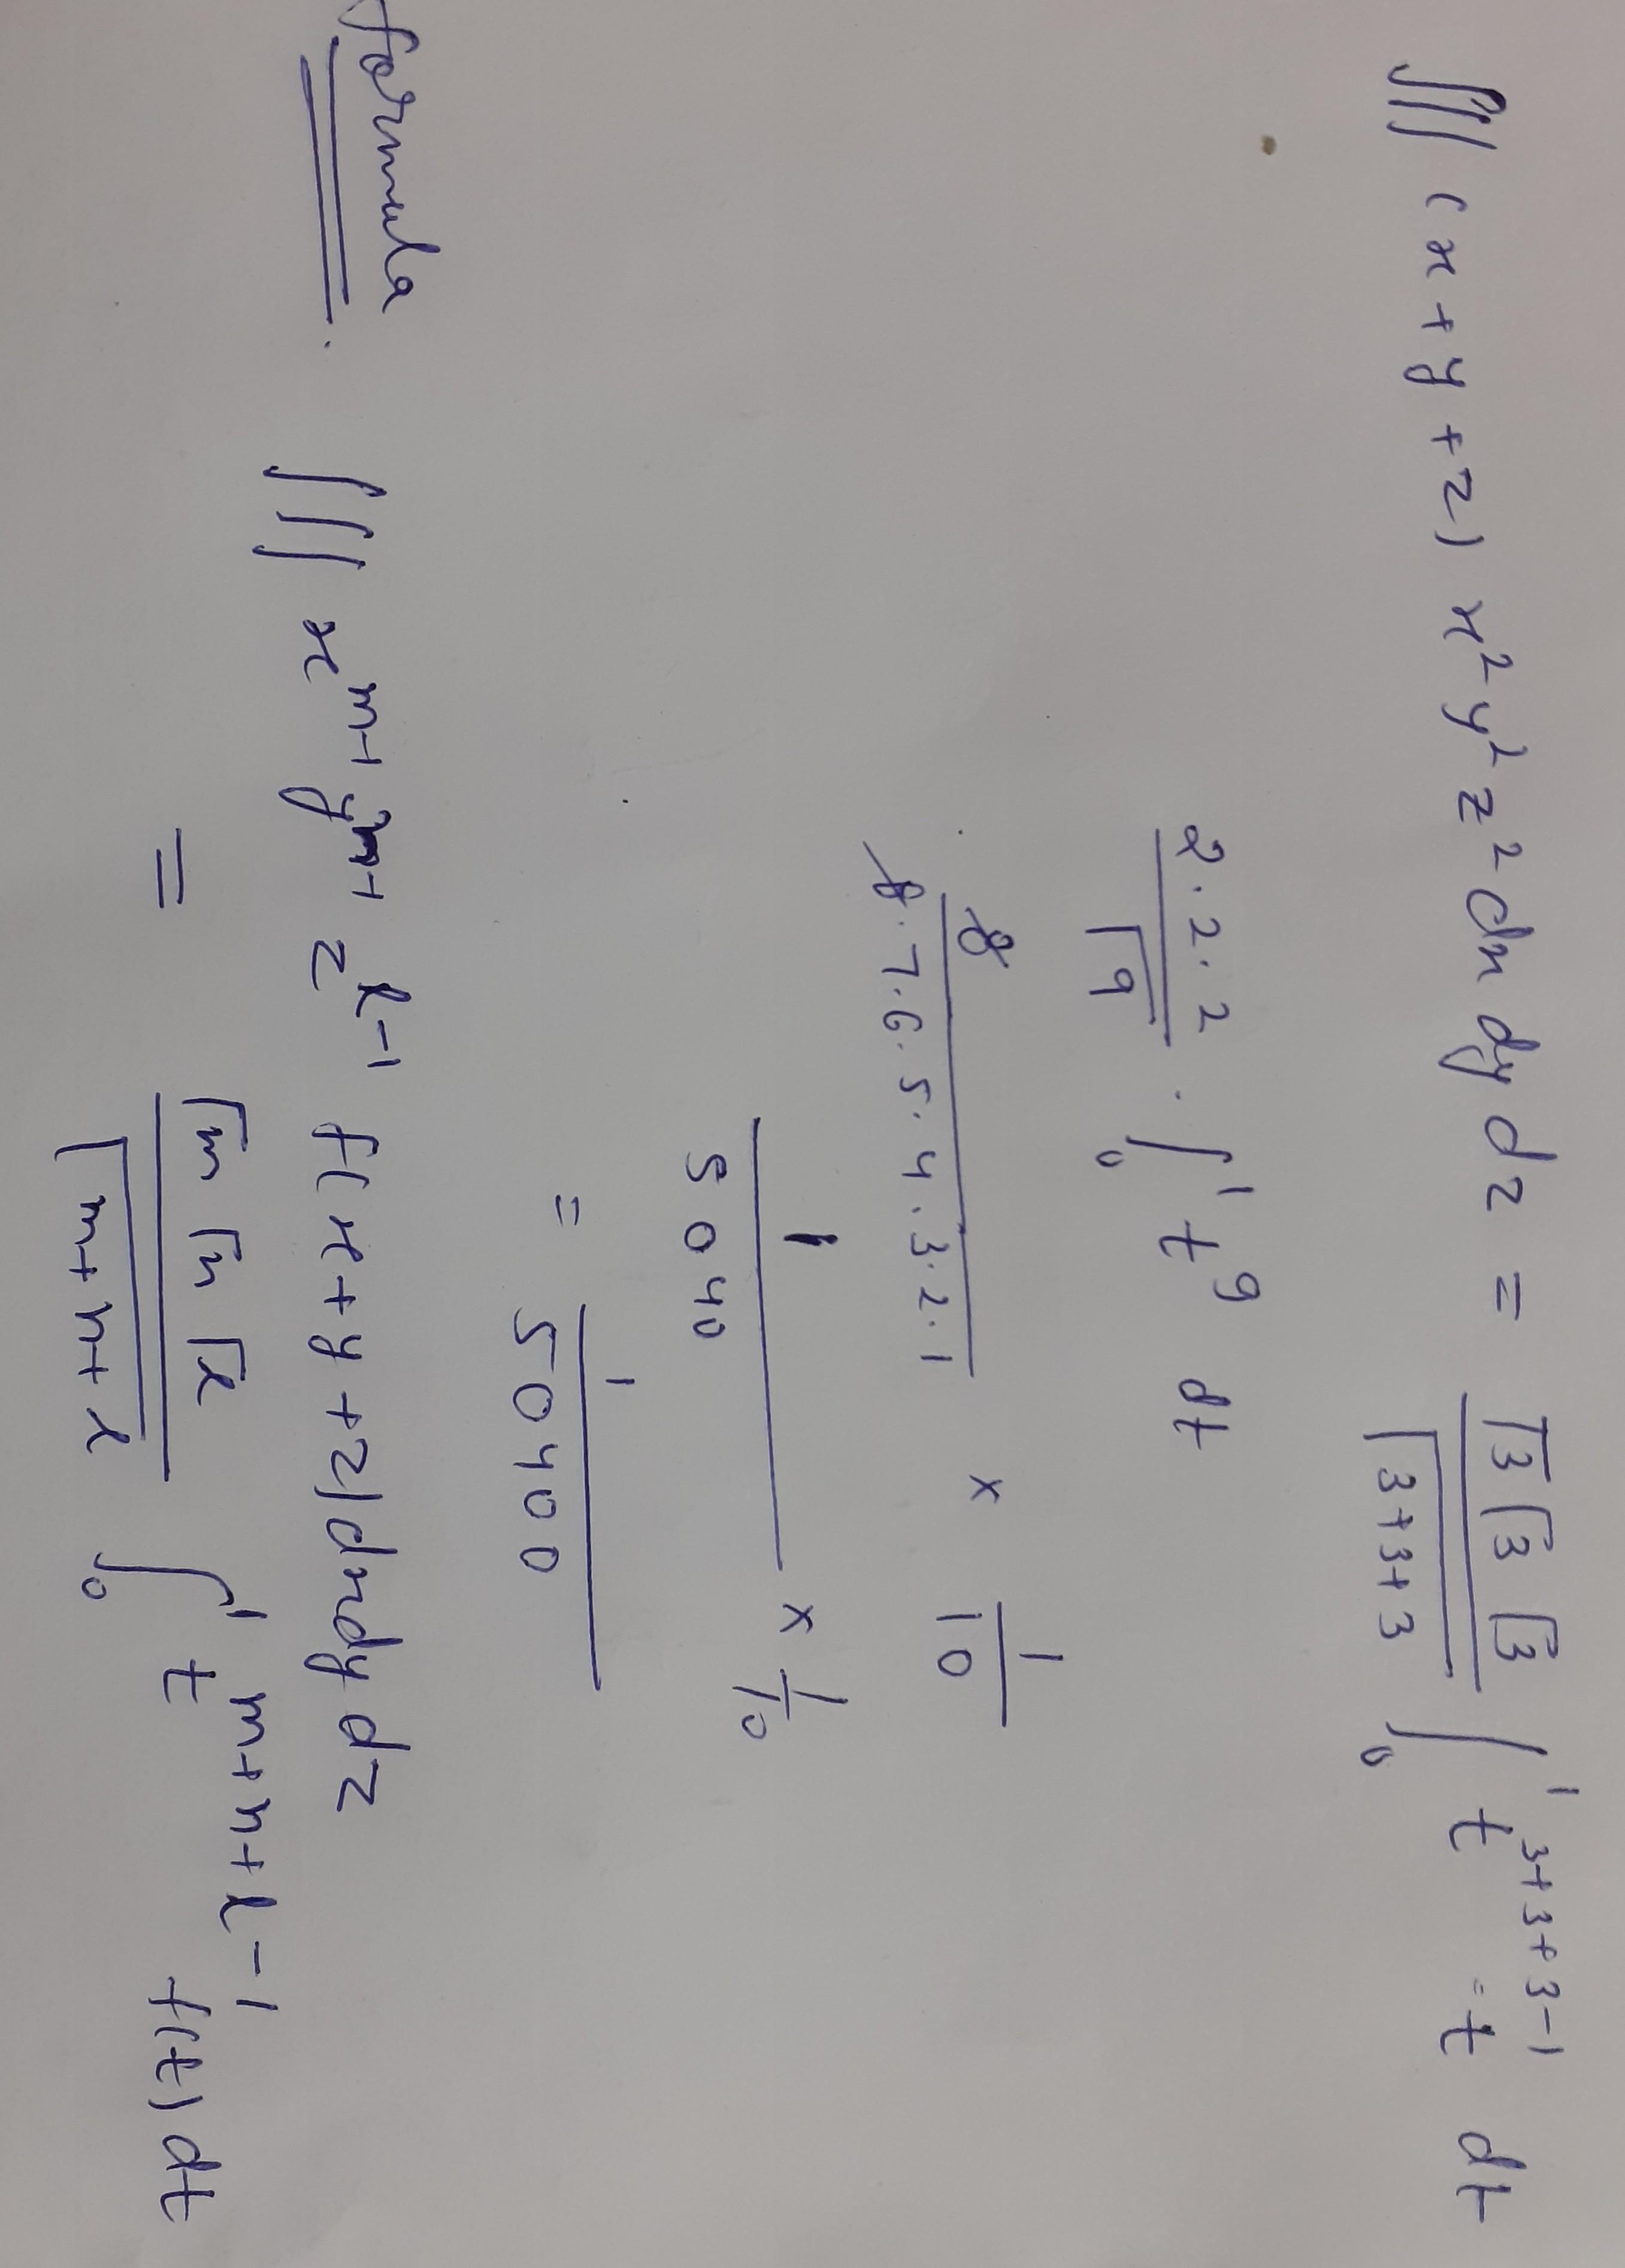 ∭ (x + y + z) x² y² z² dx dy dz = (Γ3 Γ3 Γ3)/(Γ3+3+3) ∫₀¹ t³⁺³⁺³⁻¹ · t dt
(2·2·2)/(Γ9) · ∫₀¹ t⁹ dt
8/(8·7·6·5·4·3·2·1) × 1/10
1/5040 × 1/10
= 1/50400
formula. ∭ xᵐ⁻¹ yⁿ⁻¹ zˡ⁻¹ f(x + y + z) dx dy dz
= (Γm Γn Γl)/(Γm+n+l) ∫₀¹ tᵐ⁺ⁿ⁺ˡ⁻¹ f(t) dt